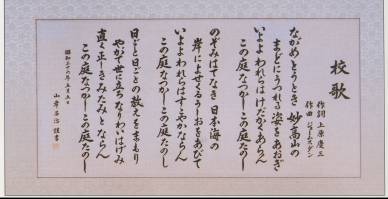 校歌
作詞 上原慶三
作曲
ながめとうとき 妙高山の
まどにうつれる 姿をあおぎ
いよよ われらは けだかくあらん
この庭なつかし この庭たのし
のぞみはてなき 日本海の
岸によせくる うしおをあびて
いよよ われらは すこやかならん
この庭なつかし この庭たのし
日ごと日ごとの 教えをまもり
やがて世に立ち なりわいはげみ
直く正しき みたみとならん
この庭なつかし この庭たのし
昭和三十六年五月五日